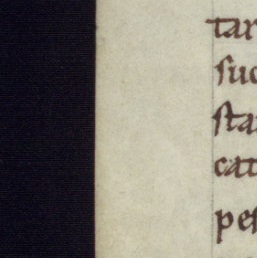 tar
ſuc
ſta
cat
peſ